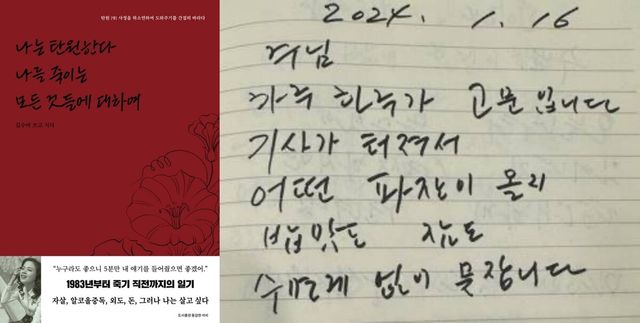 탄원 [명] 사정을 하소연하여 도와주기를 간절히 바라다
나는 탄원한다
나를 죽이는
모든 것들에 대하여
김수미 쓰고 지다
"누구라도 좋으니 5분만 내 얘기를 들어줬으면 좋겠어."
1983년부터 죽기 직전까지의 일기
자살, 알코올중독, 외도, 돈, 그러나 나는 살고 싶다
2024. 1. 16
하루 하루가 고문입니다
기사가 터져서
어떤 파장이 올지
밥맛도 잠도
수면제 없이 못잡니다